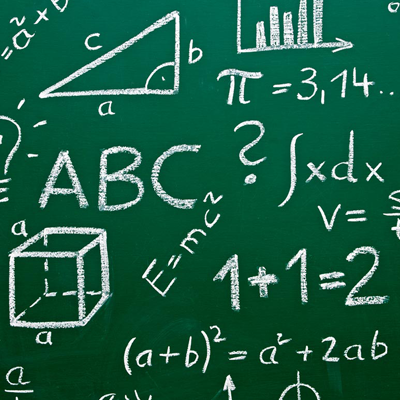 =a²+b
c
b
a
π =3,14..
ABC
?
∫xdx
v=
E=mc²
1+1=2
a
a
(a+b)²=a²+2ab
a